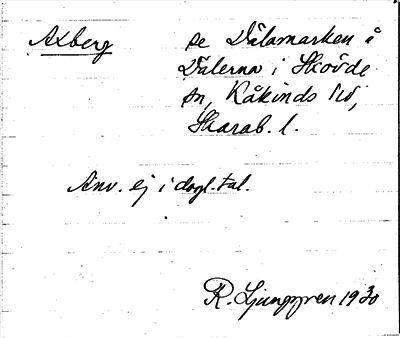 Axberg
se Dälamarken å
Dälerna i Skövde
sn, Kåkinds hd,
Skarab. l.
Anv. ej i dagl. tal.
R. Ljunggren 1930